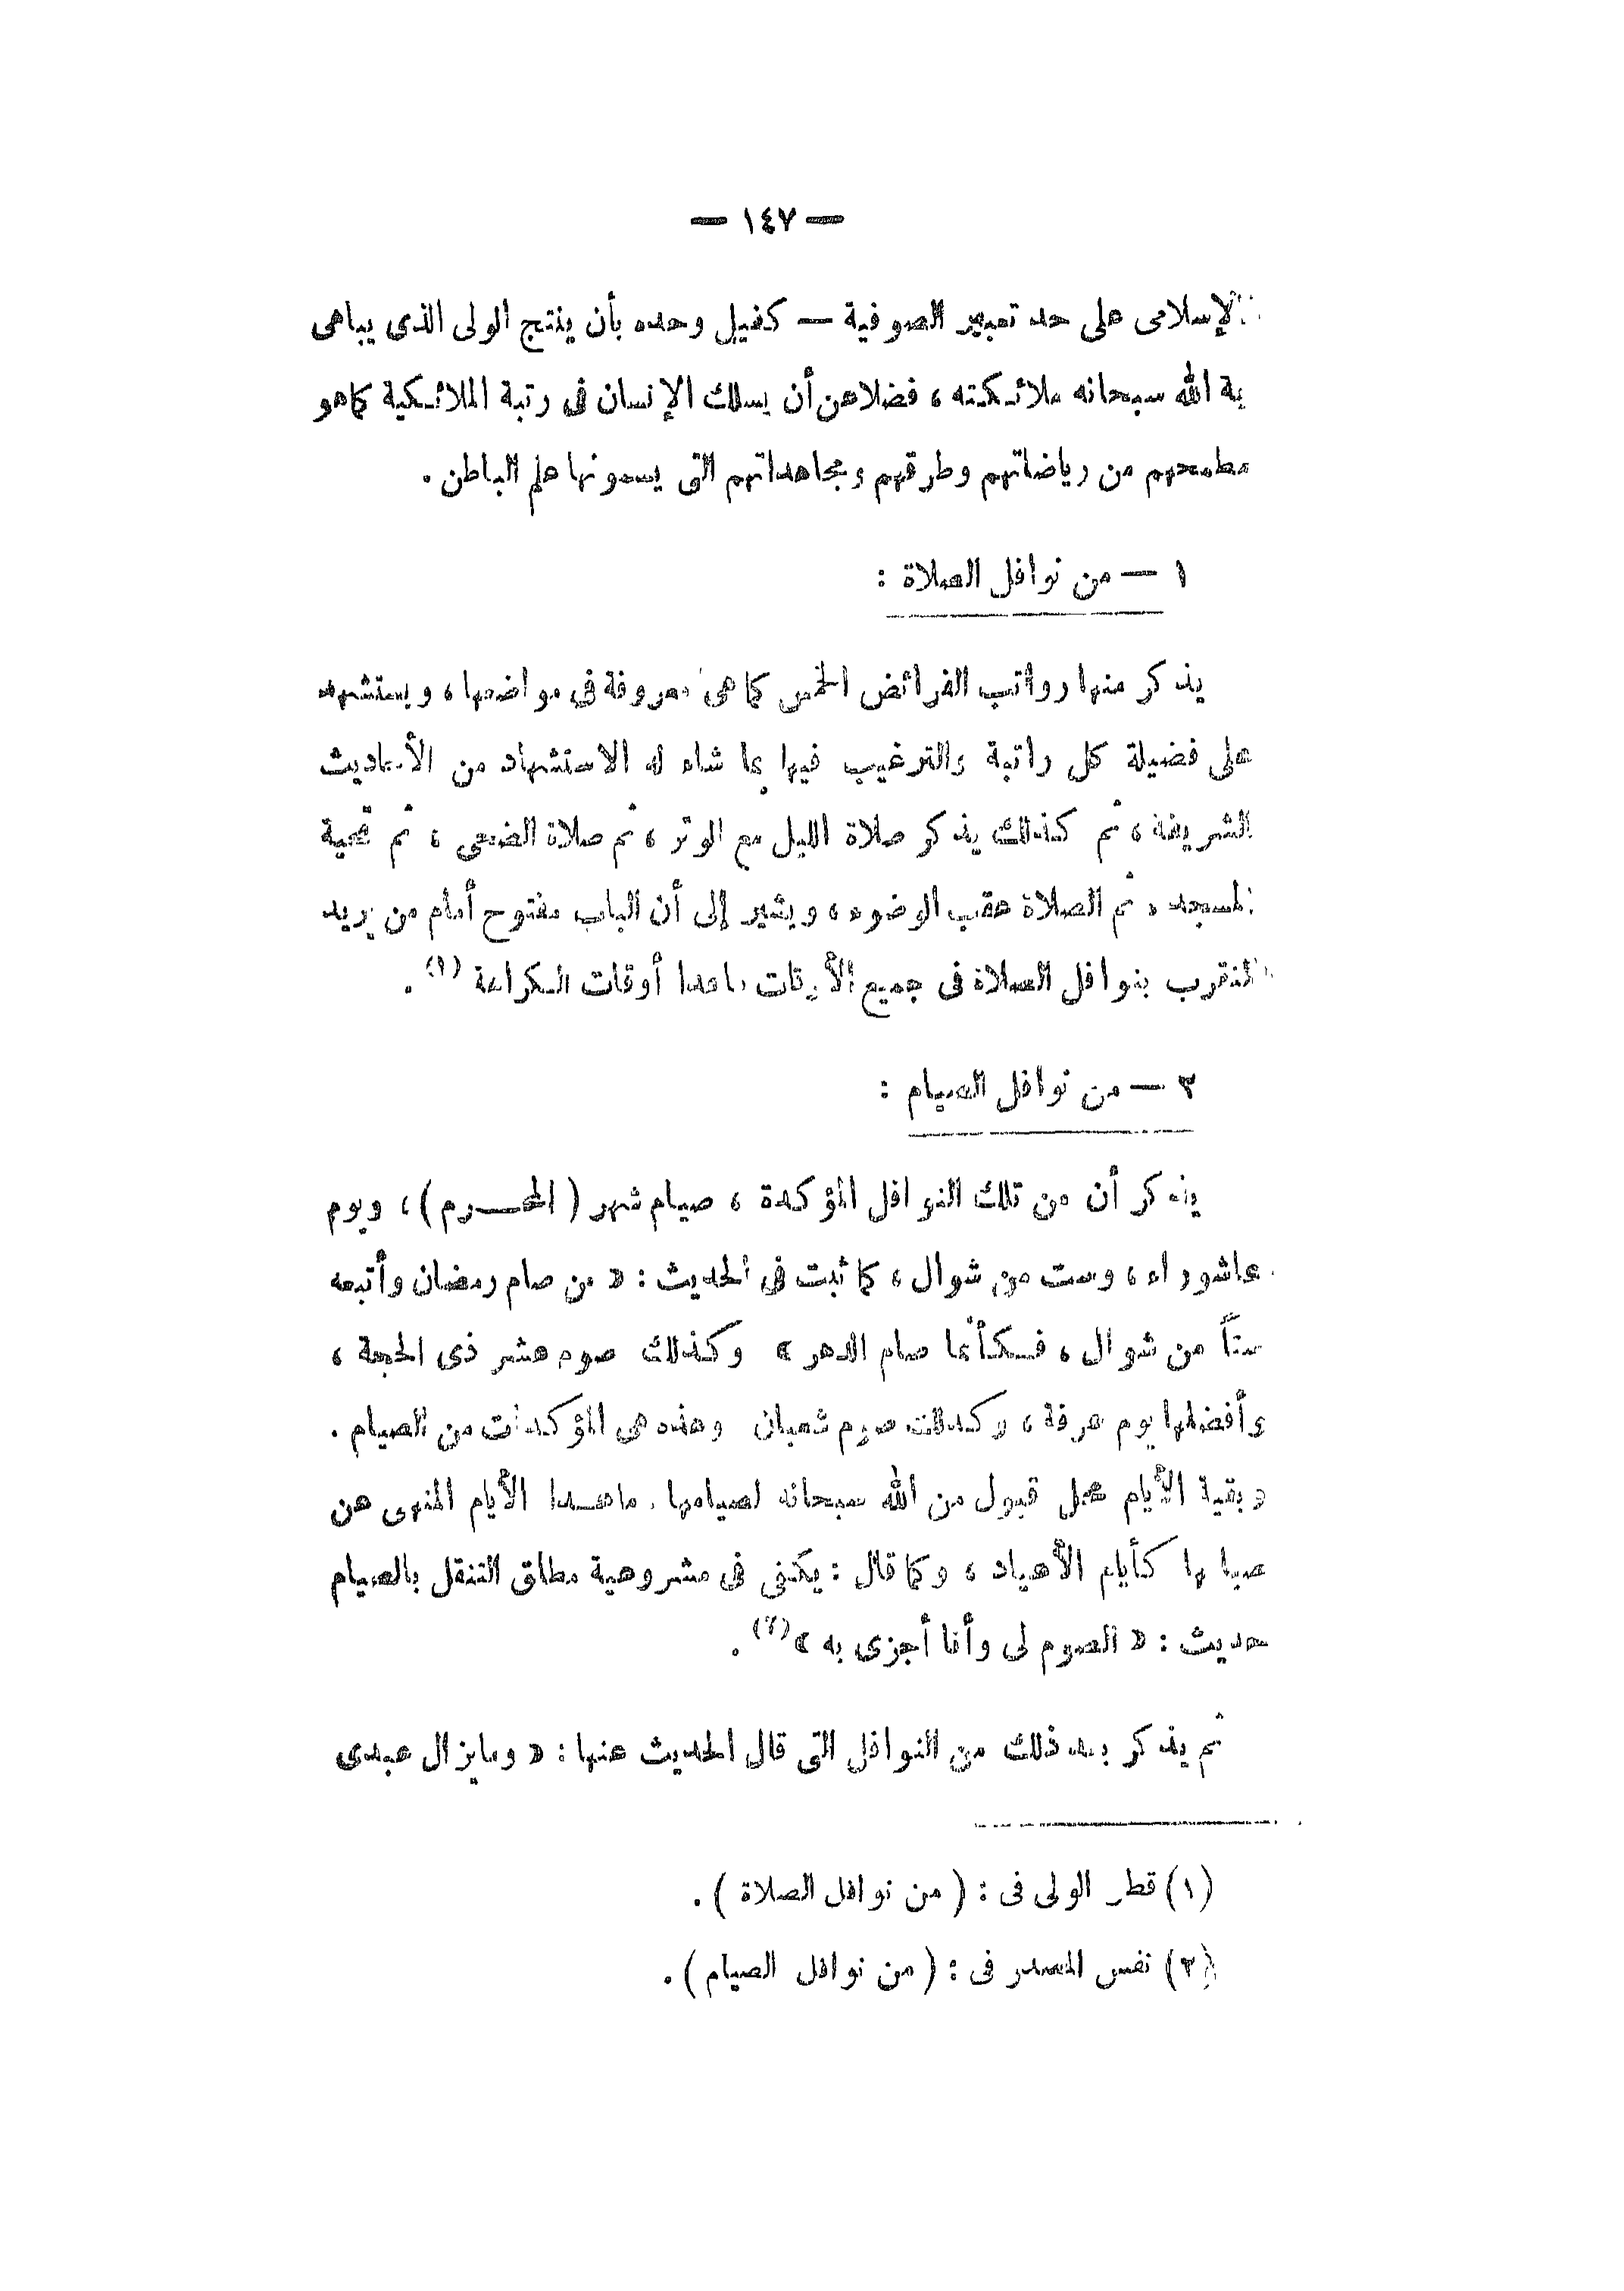 — ١٤٧ —
الإسلامى على حد تعبير الصوفية — كفيل وحده بأن ينتج الولى الذى يباهى
به الله سبحانه ملائكته ، فضلا عن أن يسلك الإنسان فى رتبة الملائكية كما هو
مطمحهم من رياضاتهم وطرقهم ومجاهداتهم التى يسمونها علم الباطن .
١ — من نوافل الصلاة :
يذكر منها رواتب الفرائض الخمس كما هى معروفة فى مواضعها ، ويستشهد
على فضيلة كل راتبة والترغيب فيها بما شاء له الاستشهاد من الأحاديث
الشريفة ، ثم كذلك يذكر صلاة الليل مع الوتر ، ثم صلاة الضحى ، ثم تحية
المسجد ، ثم الصلاة عقب الوضوء ، ويشير إلى أن الباب مفتوح أمام من يريد
التقرب بنوافل الصلاة فى جميع الأوقات ماعدا أوقات الكراهة (١) .
٢ — من نوافل الصيام :
يذكر أن من تلك النوافل المؤكدة ، صيام شهر ( المحرم ) ، ويوم
عاشوراء ، وست من شوال ، كما ثبت فى الحديث : « من صام رمضان وأتبعه
ستاً من شوال ، فكأنما صام الدهر » وكذلك صوم عشر ذى الحجة ،
وأفضلها يوم عرفة ، وكذلك صوم شعبان وهذه هى المؤكدات من الصيام .
وبقية الأيام محل قبول من الله سبحانه لصيامها . ماعدا الأيام المنهى عن
صيامها كأيام الأعياد ، وكما قال : يكفى فى مشروعية مطلق التنقل بالصيام
حديث : « الصوم لى وأنا أجزى به » (٢) .
ثم يذكر بعد ذلك من النوافل التى قال الحديث عنها : « وما يزال عبدى
(١) قطر الولى فى : ( من نوافل الصلاة ) .
(٢) نفس المصدر فى : ( من نوافل الصيام ) .